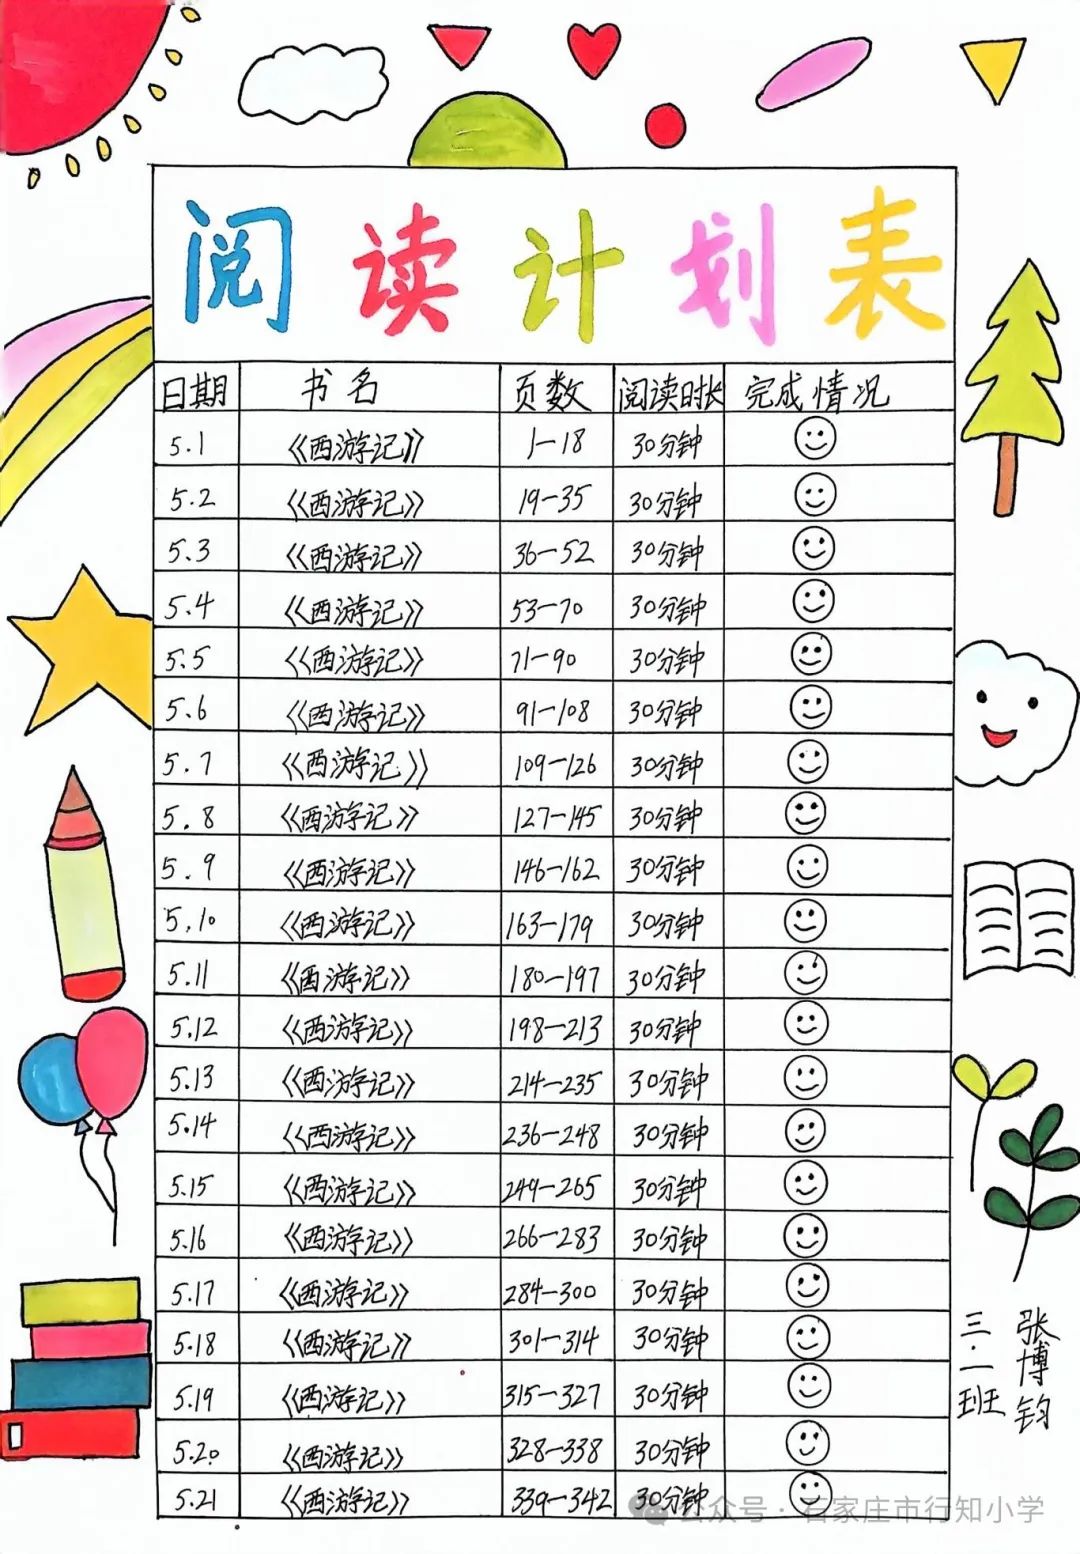 阅读计划表
日期 书名 页数 阅读时长 完成情况
5.1 《西游记》 1-18 30分钟
5.2 《西游记》 19-35 30分钟
5.3 《西游记》 36-52 30分钟
5.4 《西游记》 53-70 30分钟
5.5 《西游记》 71-90 30分钟
5.6 《西游记》 91-108 30分钟
5.7 《西游记》 109-126 30分钟
5.8 《西游记》 127-145 30分钟
5.9 《西游记》 146-162 30分钟
5.10 《西游记》 163-179 30分钟
5.11 《西游记》 180-197 30分钟
5.12 《西游记》 198-213 30分钟
5.13 《西游记》 214-235 30分钟
5.14 《西游记》 236-248 30分钟
5.15 《西游记》 249-265 30分钟
5.16 《西游记》 266-283 30分钟
5.17 《西游记》 284-300 30分钟
5.18 《西游记》 301-314 30分钟
5.19 《西游记》 315-327 30分钟
5.20 《西游记》 328-338 30分钟
5.21 《西游记》 339-342 30分钟
三.一班
张博钧
公众号·石家庄市行知小学